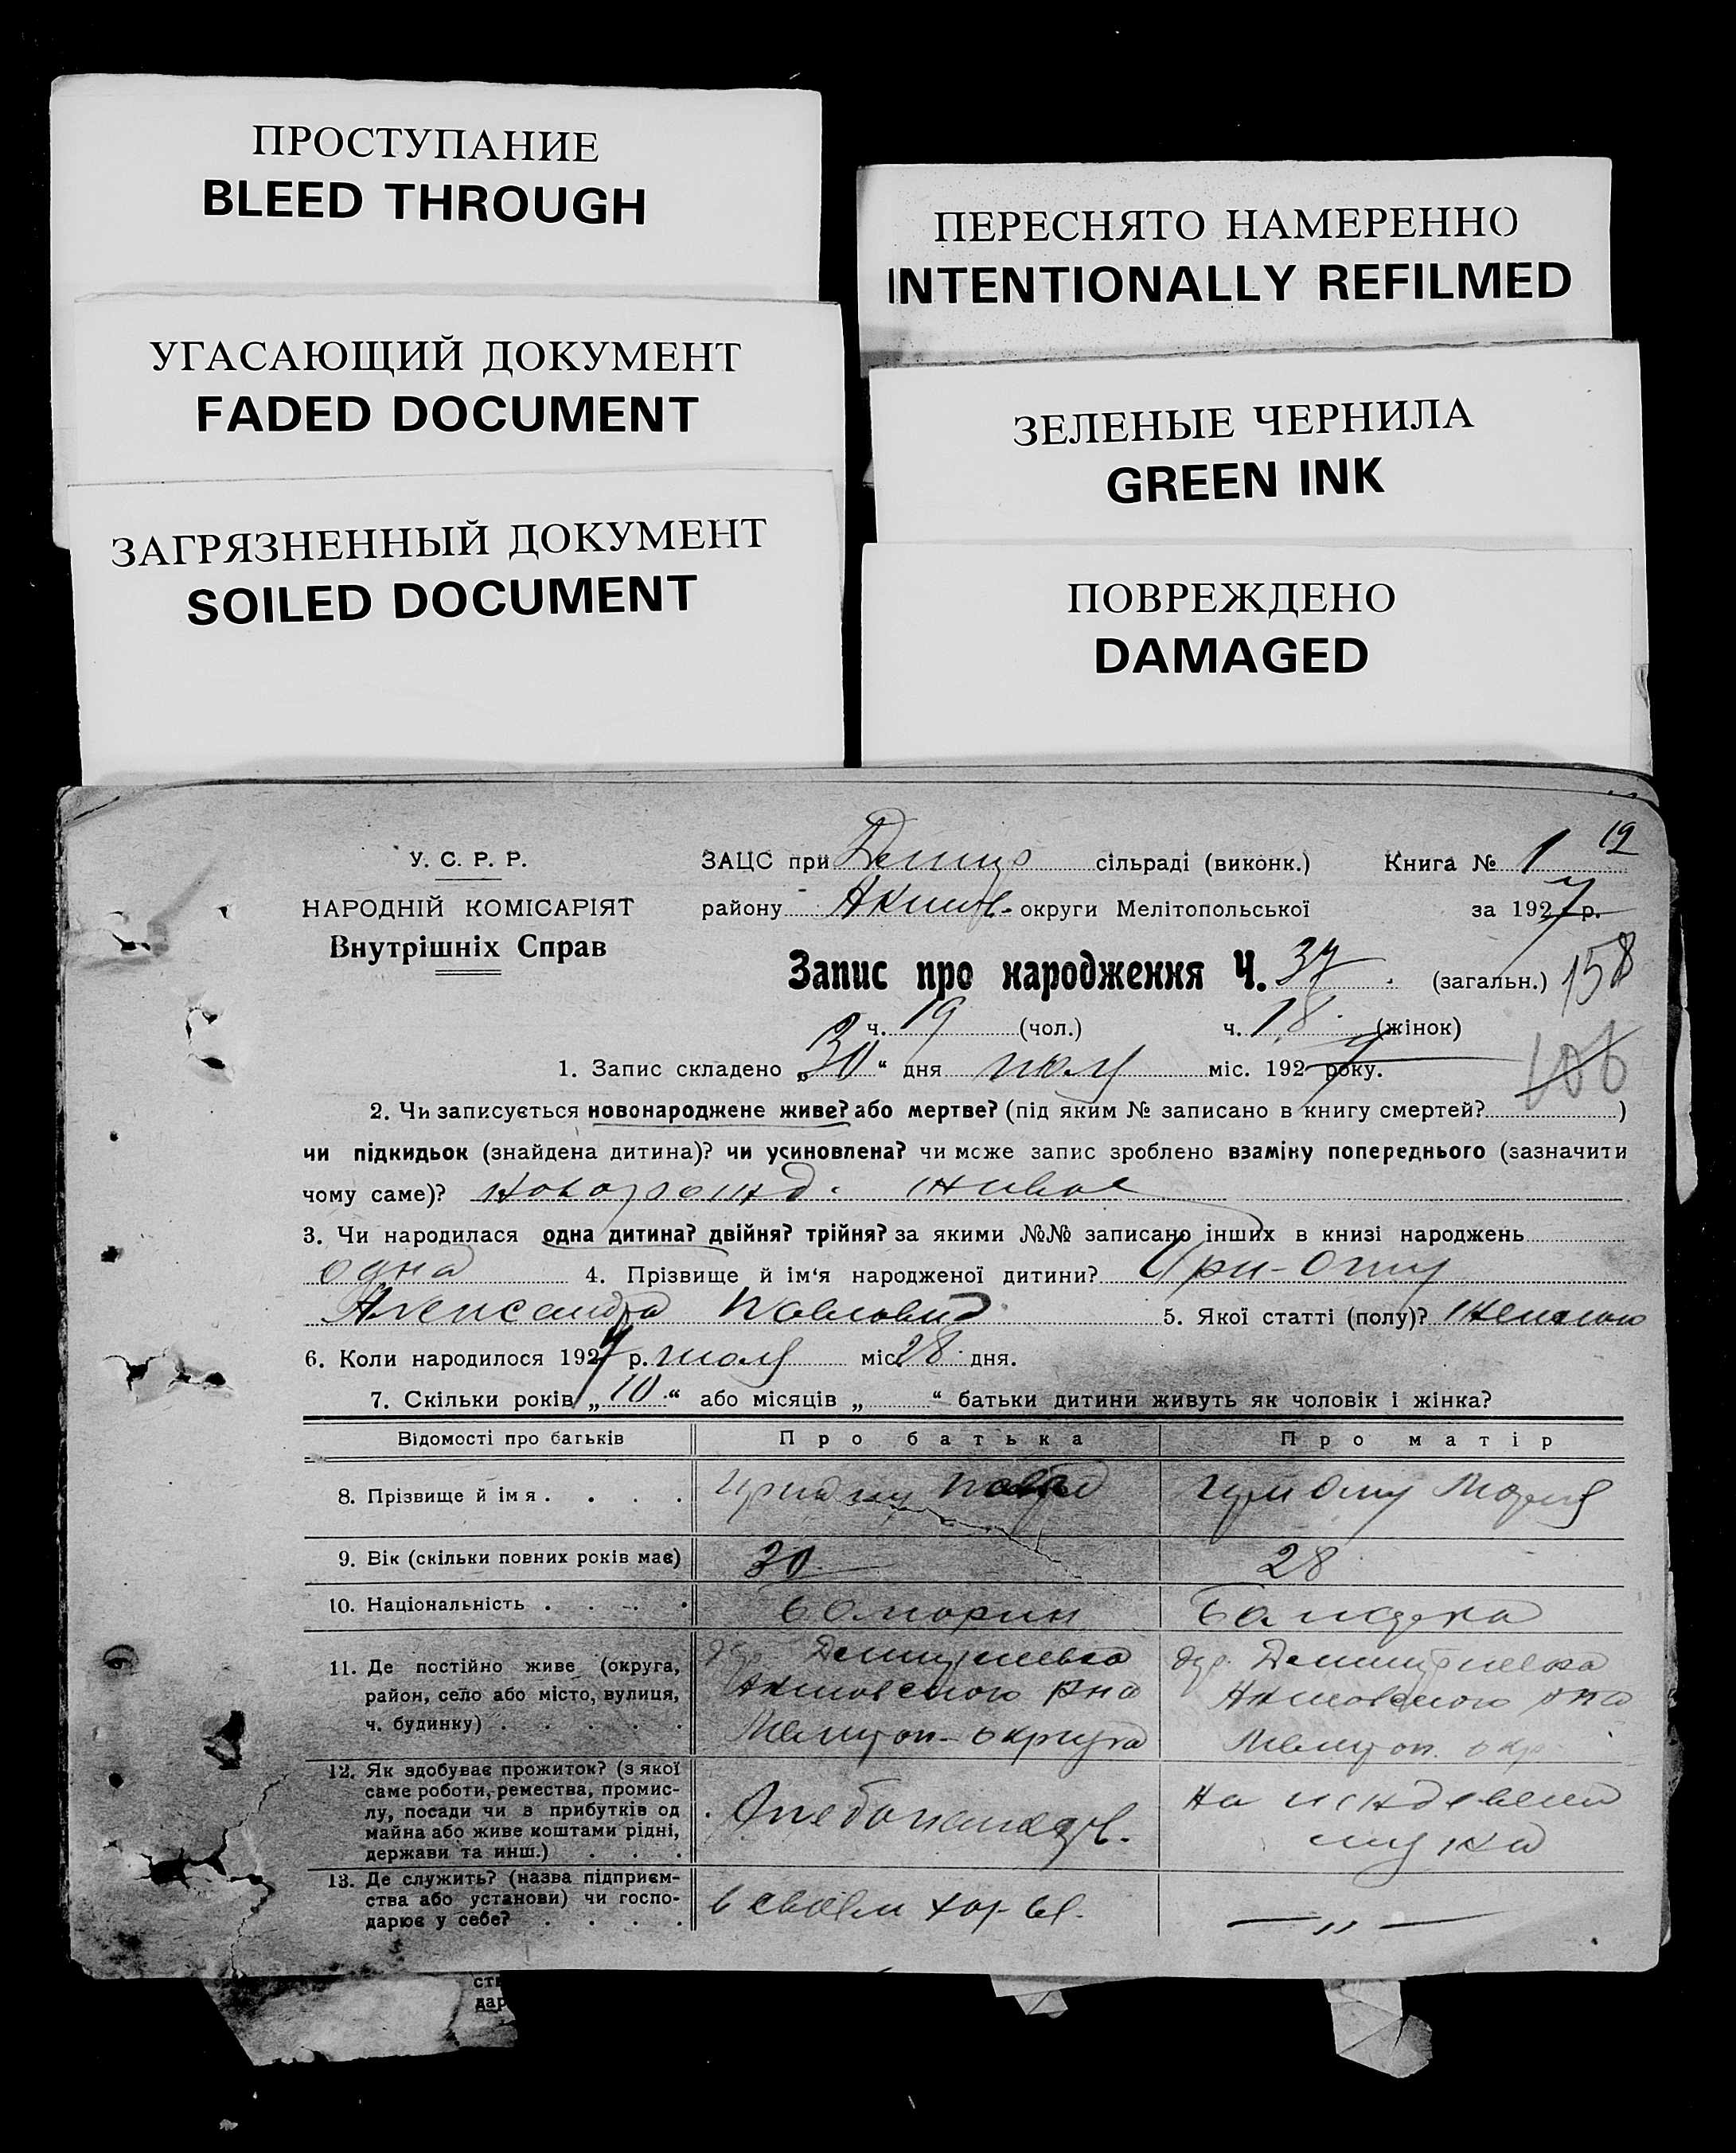 ПРОСТУПАНИЕ
BLEED THROUGH
ПЕРЕСНЯТО НАМЕРЕННО
INTENTIONALLY REFILMED
УГАСАЮЩИЙ ДОКУМЕНТ
FADED DOCUMENT
ЗЕЛЕНЫЕ ЧЕРНИЛА
GREEN INK
ЗАГРЯЗНЕННЫЙ ДОКУМЕНТ
SOILED DOCUMENT
ПОВРЕЖДЕНО
DAMAGED
19
У. С. Р. Р.
НАРОДНІЙ КОМІСАРІЯТ
Внутрішніх Справ
ЗАЦС при сільраді (виконк.) Книга № 1
району Аким. округи Мелітопольської за 1927 р.
Запис про народження Ч. 37 (загальн.) 158
ч. 19 (чол.) ч. 18 (жінок)
106
1. Запис складено „30“ дня июля міс. 1927 року.
2. Чи записується новонароджене живе? або мертве? (під яким № записано в книгу смертей? )
чи підкидьок (знайдена дитина)? чи усиновлена? чи може запис зроблено взаміну попереднього (зазначити
чому саме)? новорожд. живое
3. Чи народилася одна дитина? двійня? трійня? за якими №№ записано інших в книзі народжень
одна 4. Прізвище й ім‘я народженої дитини?
Александра Павловна 5. Якої статті (полу)? женского
6. Коли народилося 1927 р. июля міс 28 дня.
7. Скільки років „10“ або місяців „ “ батьки дитини живуть як чоловік і жінка?
Відомості про батьків Про батька Про матір
8. Прізвище й імя . . . . Павел Мария
9. Вік (скільки повних років має) 30 28
10. Національність . . . . болгарин болгарка
11. Де постійно живе (округа,
район, село або місто, вулиця,
ч. будинку) . . . . .
дер. Акимовского рна
Мелитоп. округа
дер. Акимовского рна
Мелитоп. окр.
12. Як здобуває прожиток? (з якої
саме роботи, ремества, промис-
лу, посади чи в прибутків од
майна або живе коштами рідні,
держави та инш.) . . .
Хлебопашец
На иждевении
мужа
13. Де служить? (назва підприєм-
ства або установи) чи госпо-
дарює у себе? . . . .
в своем хоз-ве.
— „ —
ств
дар